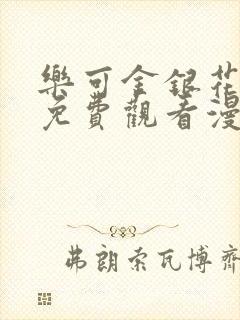 樂可金銀花
免費觀看漫
弗朗索瓦博齊